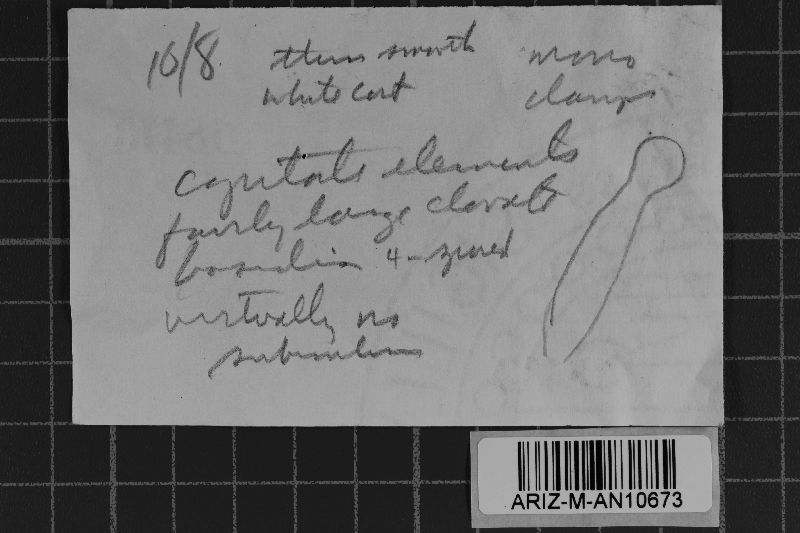 10/8 thin smooth mono
white cort clamps
capitate elements
fairly large clavate
basidia 4-spored
virtually no
subiculum
ARIZ-M-AN10673